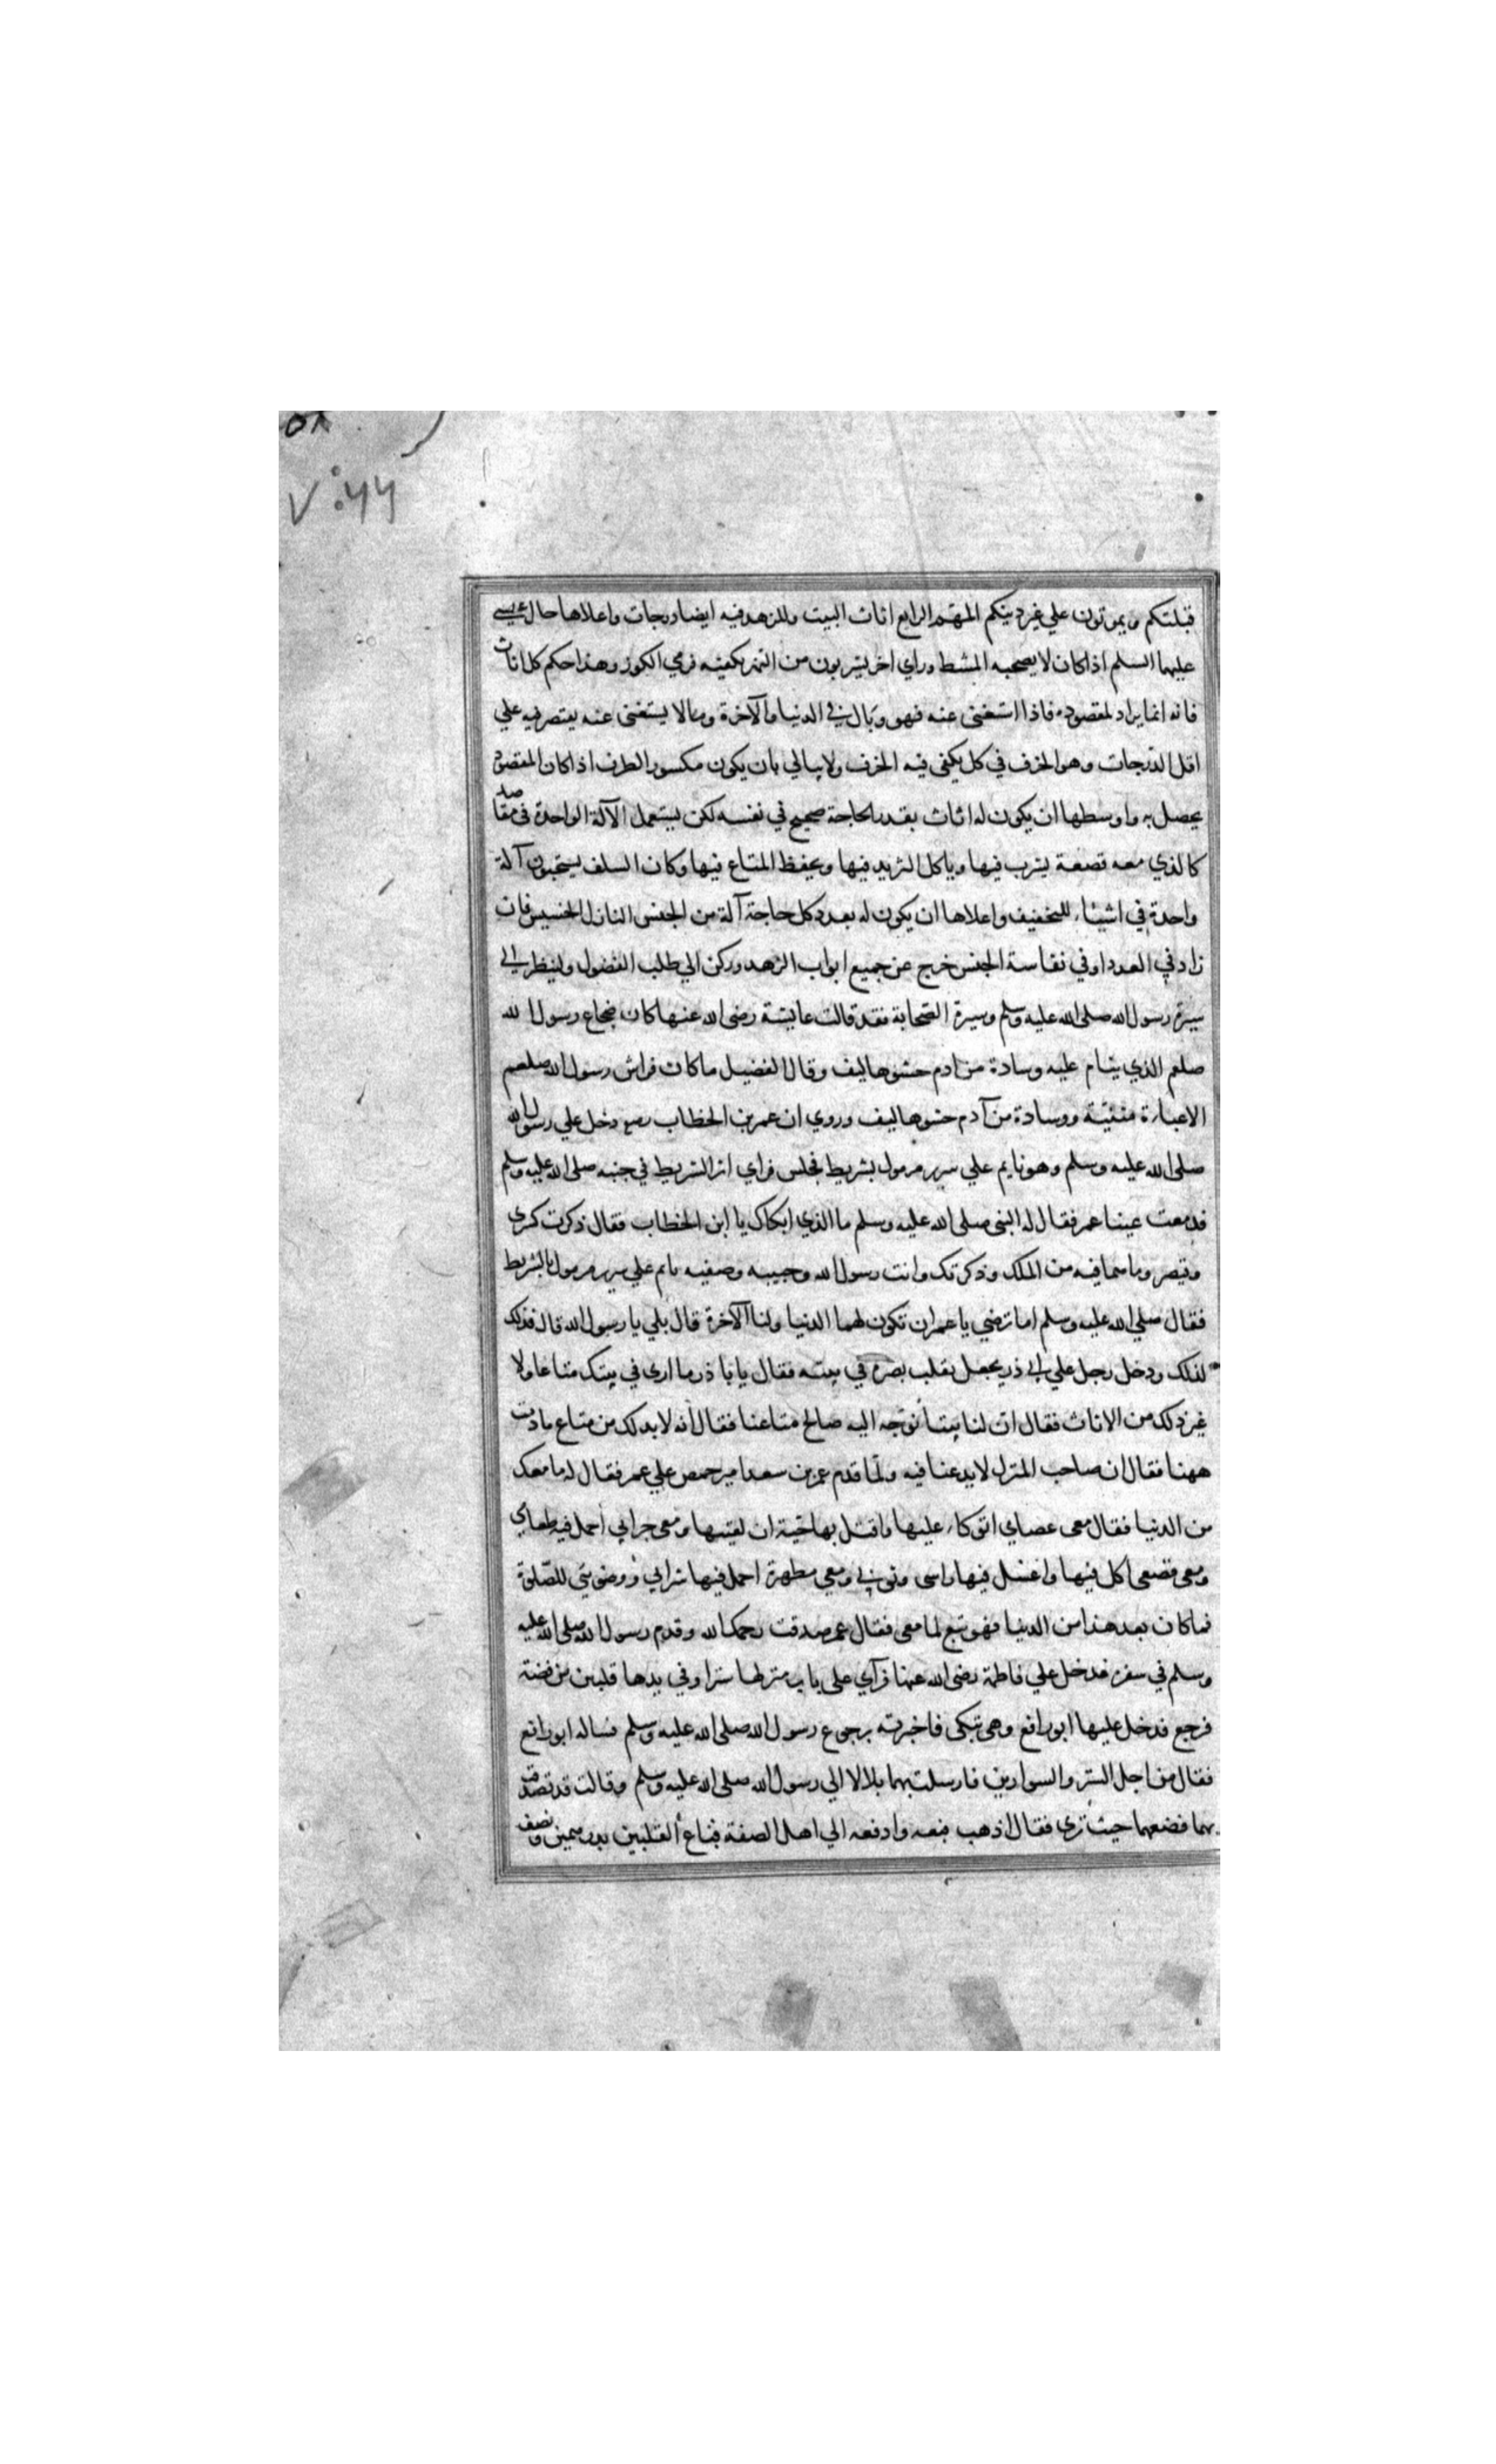 ٥٨
٧٠٤٤
قبلتكم ويموتون علي غير دينكم المهم الرابع اثاث البيت وللزهد فيه ايضا درجات واعلاها حال عيسي
عليهما السلم اذ كان لا يصحبه المشط وراي اخر يشربون من النهر بكفيه فرمي الكوز وهذا حكم كل اثاث
فانه انما يراد لمقصوده فاذا استغنى عنه فهو وبال في الدنيا والآخرة وما لا يستغنى عنه يقتصر فيه علي
اقل الدرجات وهو الخزف في كل يكفى فيه الخزف ولا يبالي بان يكون مكسور الطرف اذا كان المقصود
يحصل به واوسطها ان يكون له اثاث بقدر الحاجة صحيح في نفسه لكن يستعمل الآلة الواحدة في مقاصد
كالذي معه قصعة يشرب فيها وياكل الثريد فيها ويحفظ المتاع فيها وكان السلف يستحبون آلة
واحدة في اشياء للتخفيف واعلاها ان يكون له بعدد كل حاجة آلة من الجنس النازل الخسيس فان
زاد في العدد او في نفاسة الجنس خرج عن جميع ابواب الزهد وركن الي طلب الفضول ولينظر الي
سيرة رسول الله صلى الله عليه وسلم وسيرة الصحابة فقد قالت عايشة رضى الله عنها كان ضجاع رسول الله
صلعم الذي ينام عليه وسادة من ادم حشوها ليف وقال الفضيل ما كان فراش رسول الله صلعم
الا عباءة مثنيّة ووسادة من آدم حشوها ليف وروي ان عمر بن الخطاب رضع دخل علي رسول الله
صلى الله عليه وسلم وهو نايم علي سرير مرمول بشريط فجلس فراي اثر الشريط في جنبه صلى الله عليه وسلم
فدمعت عينا عمر فقال له النبى صلى الله عليه وسلم ما الذي ابكاك يا ابن الخطاب فقال ذكرت كسرى
وقيصر وما هما فيه من الملك وذكرتك وانت رسول الله وحبيبه وصفيه نايم علي سرير مرمول بالشريط
فقال صلي الله عليه وسلم اما ترضي يا عمر ان تكون لهما الدنيا ولنا الآخرة قال بلي يا رسول الله قال فذلك
لذلك ودخل رجل علي ابي ذر يجعل يقلب بصره في بيته فقال يا با ذر ما ارى في بيتك متاعا ولا
غير ذلك من الاثاث فقال ان لنا بيتاً نوجّه اليه صالح متاعنا فقال انه لا بد لك من متاع ما دمت
ههنا فقال ان صاحب المنزل لا يدعنا فيه ولمّا قدم عمر بن سعد امير حمص علي عمر فقال له ما معك
من الدنيا فقال معى عصاي اتوكاء عليها واقتل بها حيّة ان لقيتها ومعى جرابي احمل فيه طعامي
ومعى قصعى اكل فيها واغسل فيها راسى وثوبي ومعي مطهرة احمل فيها شرابي ووضويتي للصّلوة
فما كان بعد هذا من الدنيا فهو تبع لما معى فقال عمر صدقت رحمك الله وقدم رسول الله صلى الله عليه
وسلم في سفره فدخل علي فاطمة رضى الله عنها فرآي على باب منزلها سترا وفي يدها قلبين من فضة
فرجع فدخل عليها ابو رافع وهى تبكى فاخبرته برجوع رسول الله صلى الله عليه وسلم فساله ابو رافع
فقال من اجل الستر والسوارين فارسلت بهما بلالا الي رسول الله صلى الله عليه وسلم وقالت قد تصدقت
بهما فضعهما حيث ترى فقال اذهب فبعه وادفعه الي اهل الصفة فباع القلبين بدرهمين ونصف